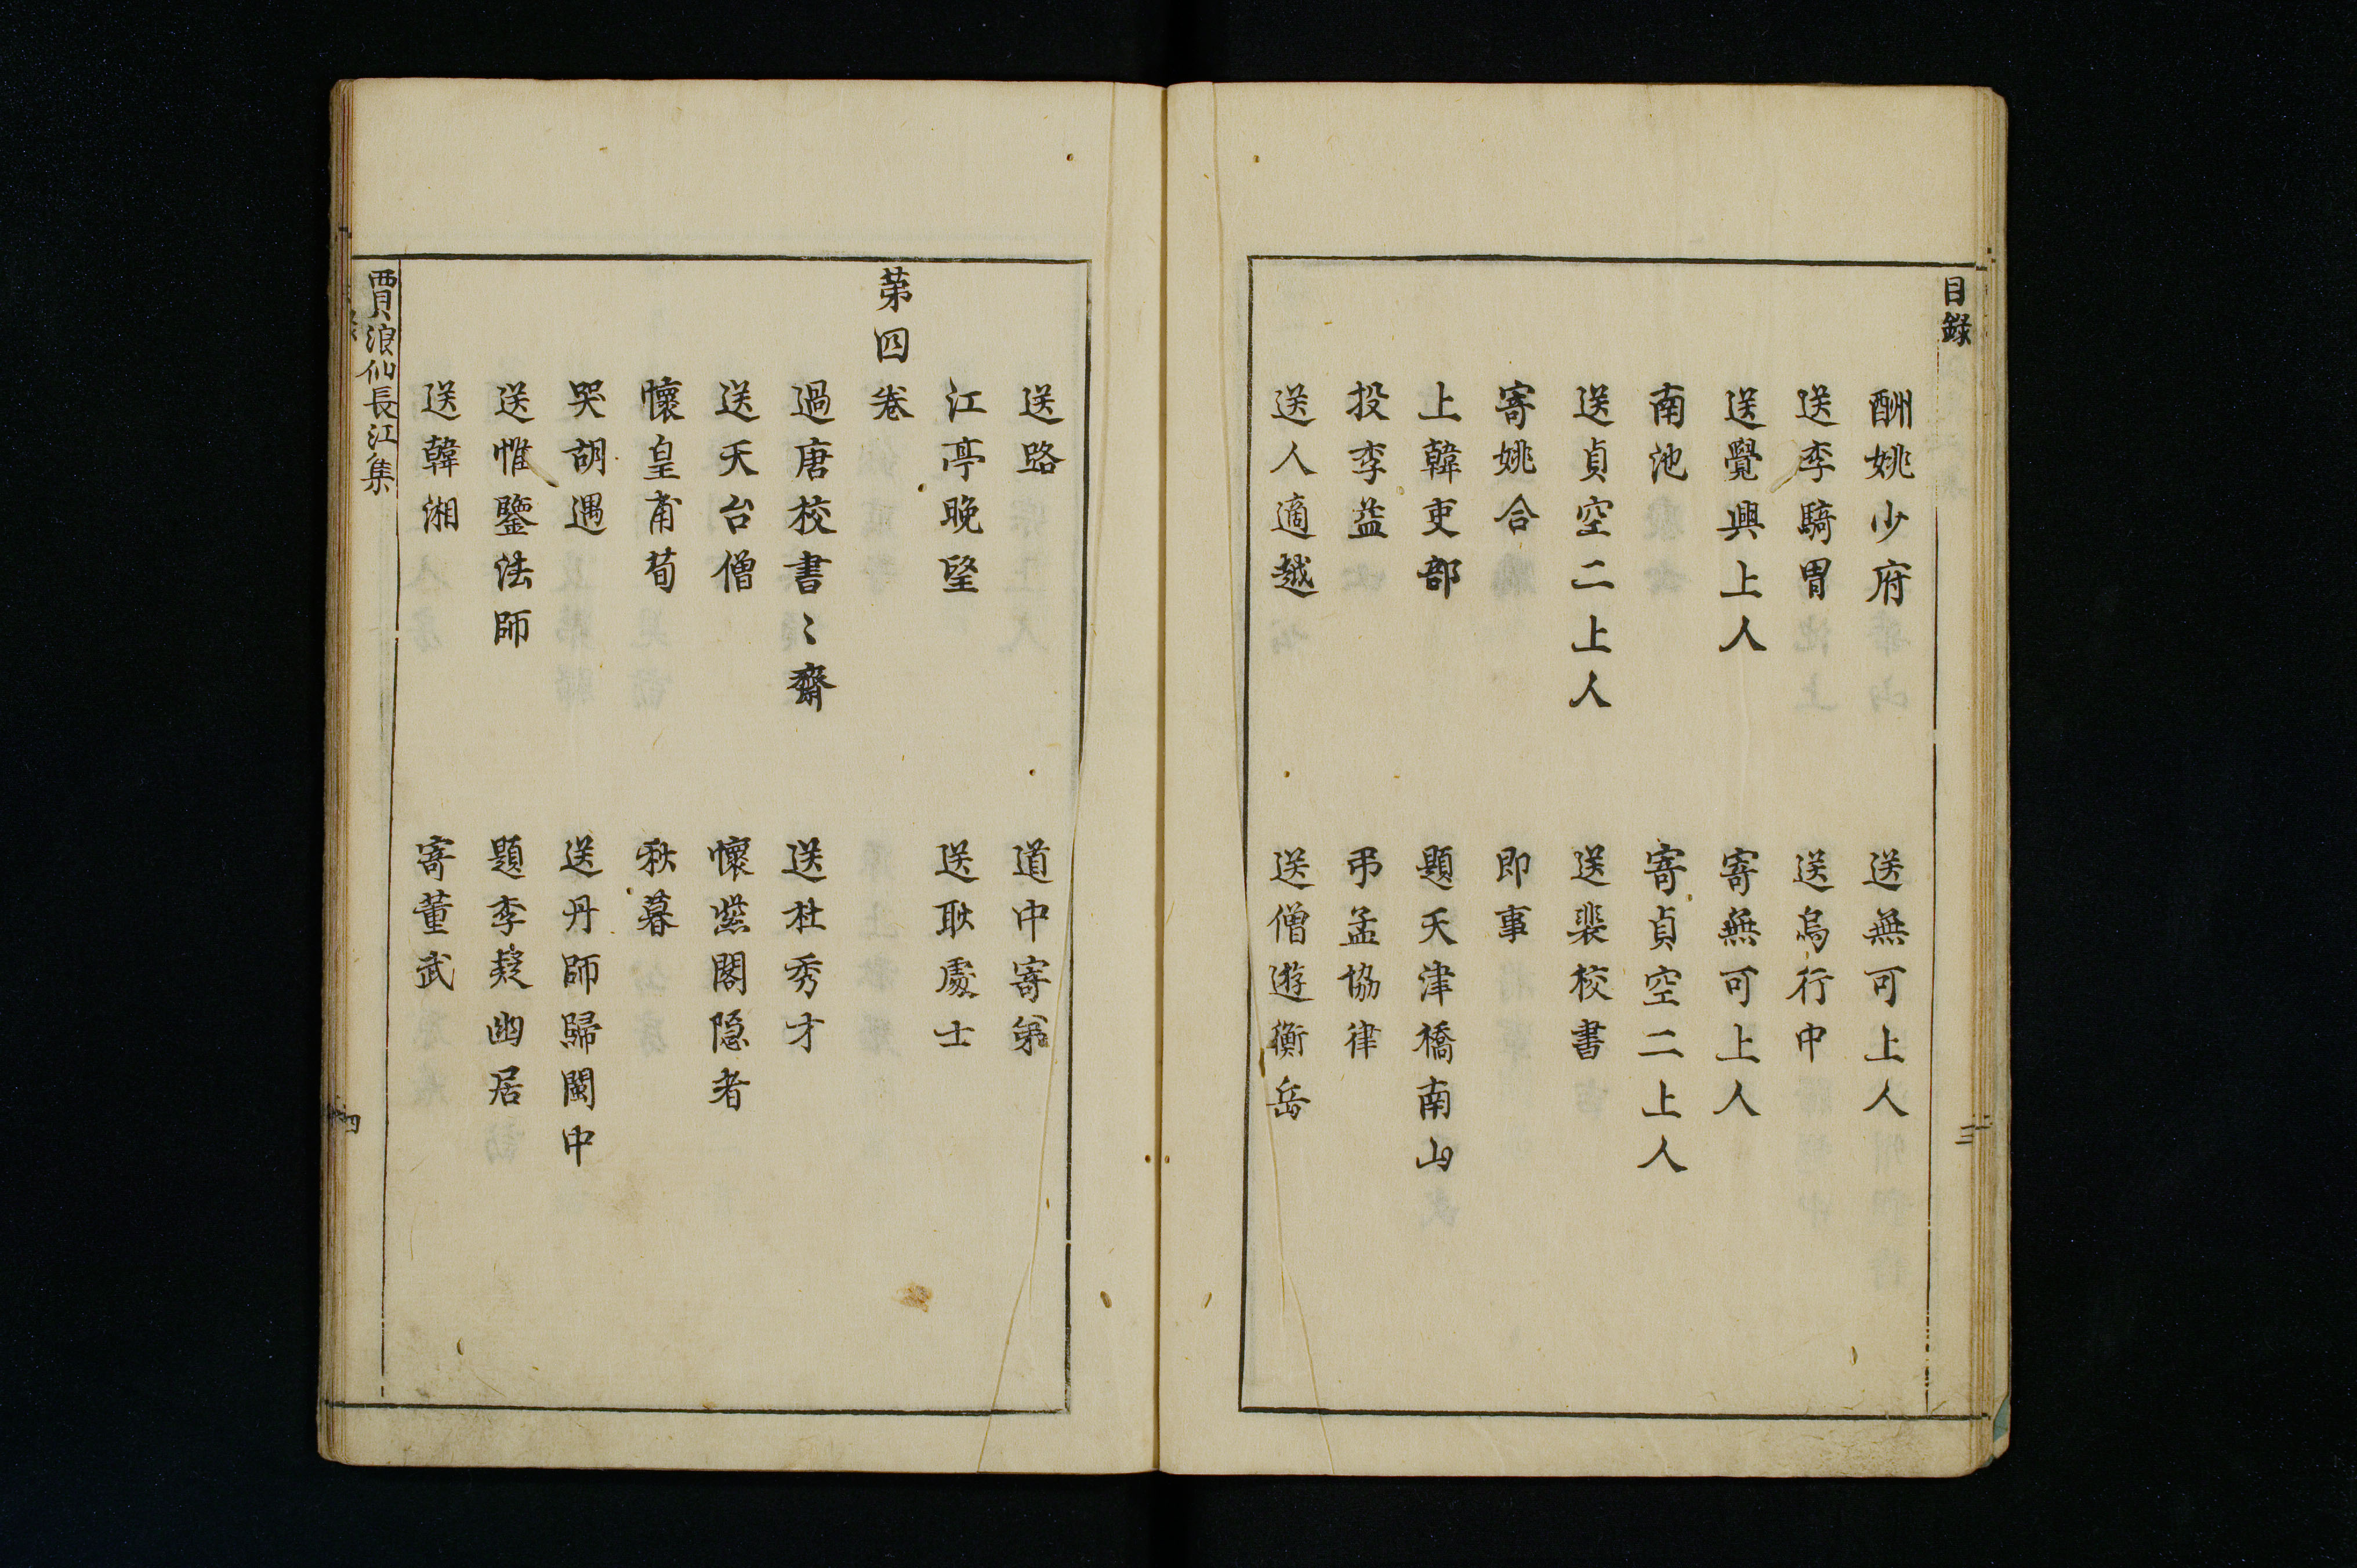 目録
酬姚少府
送無可上人
送李騎曹
送烏行中
送覺興上人
寄無可上人
南池
寄貞空二上人
送貞空二上人
送裴校書
寄姚合
即事
上韓吏部
題天津橋南山
投李益
弔孟協律
送人適越
送僧遊衡岳
三
送路
道中寄弟
江亭晩望
送耿處士
第四卷
過唐校書〻齋
送杜秀才
送天台僧
懷紫閣隠者
懷皇甫荀
秋暮
哭胡遇
送丹師歸閩中
送惟鑒法師
題李疑幽居
送韓湘
寄董武
賈浪仙長江集
四